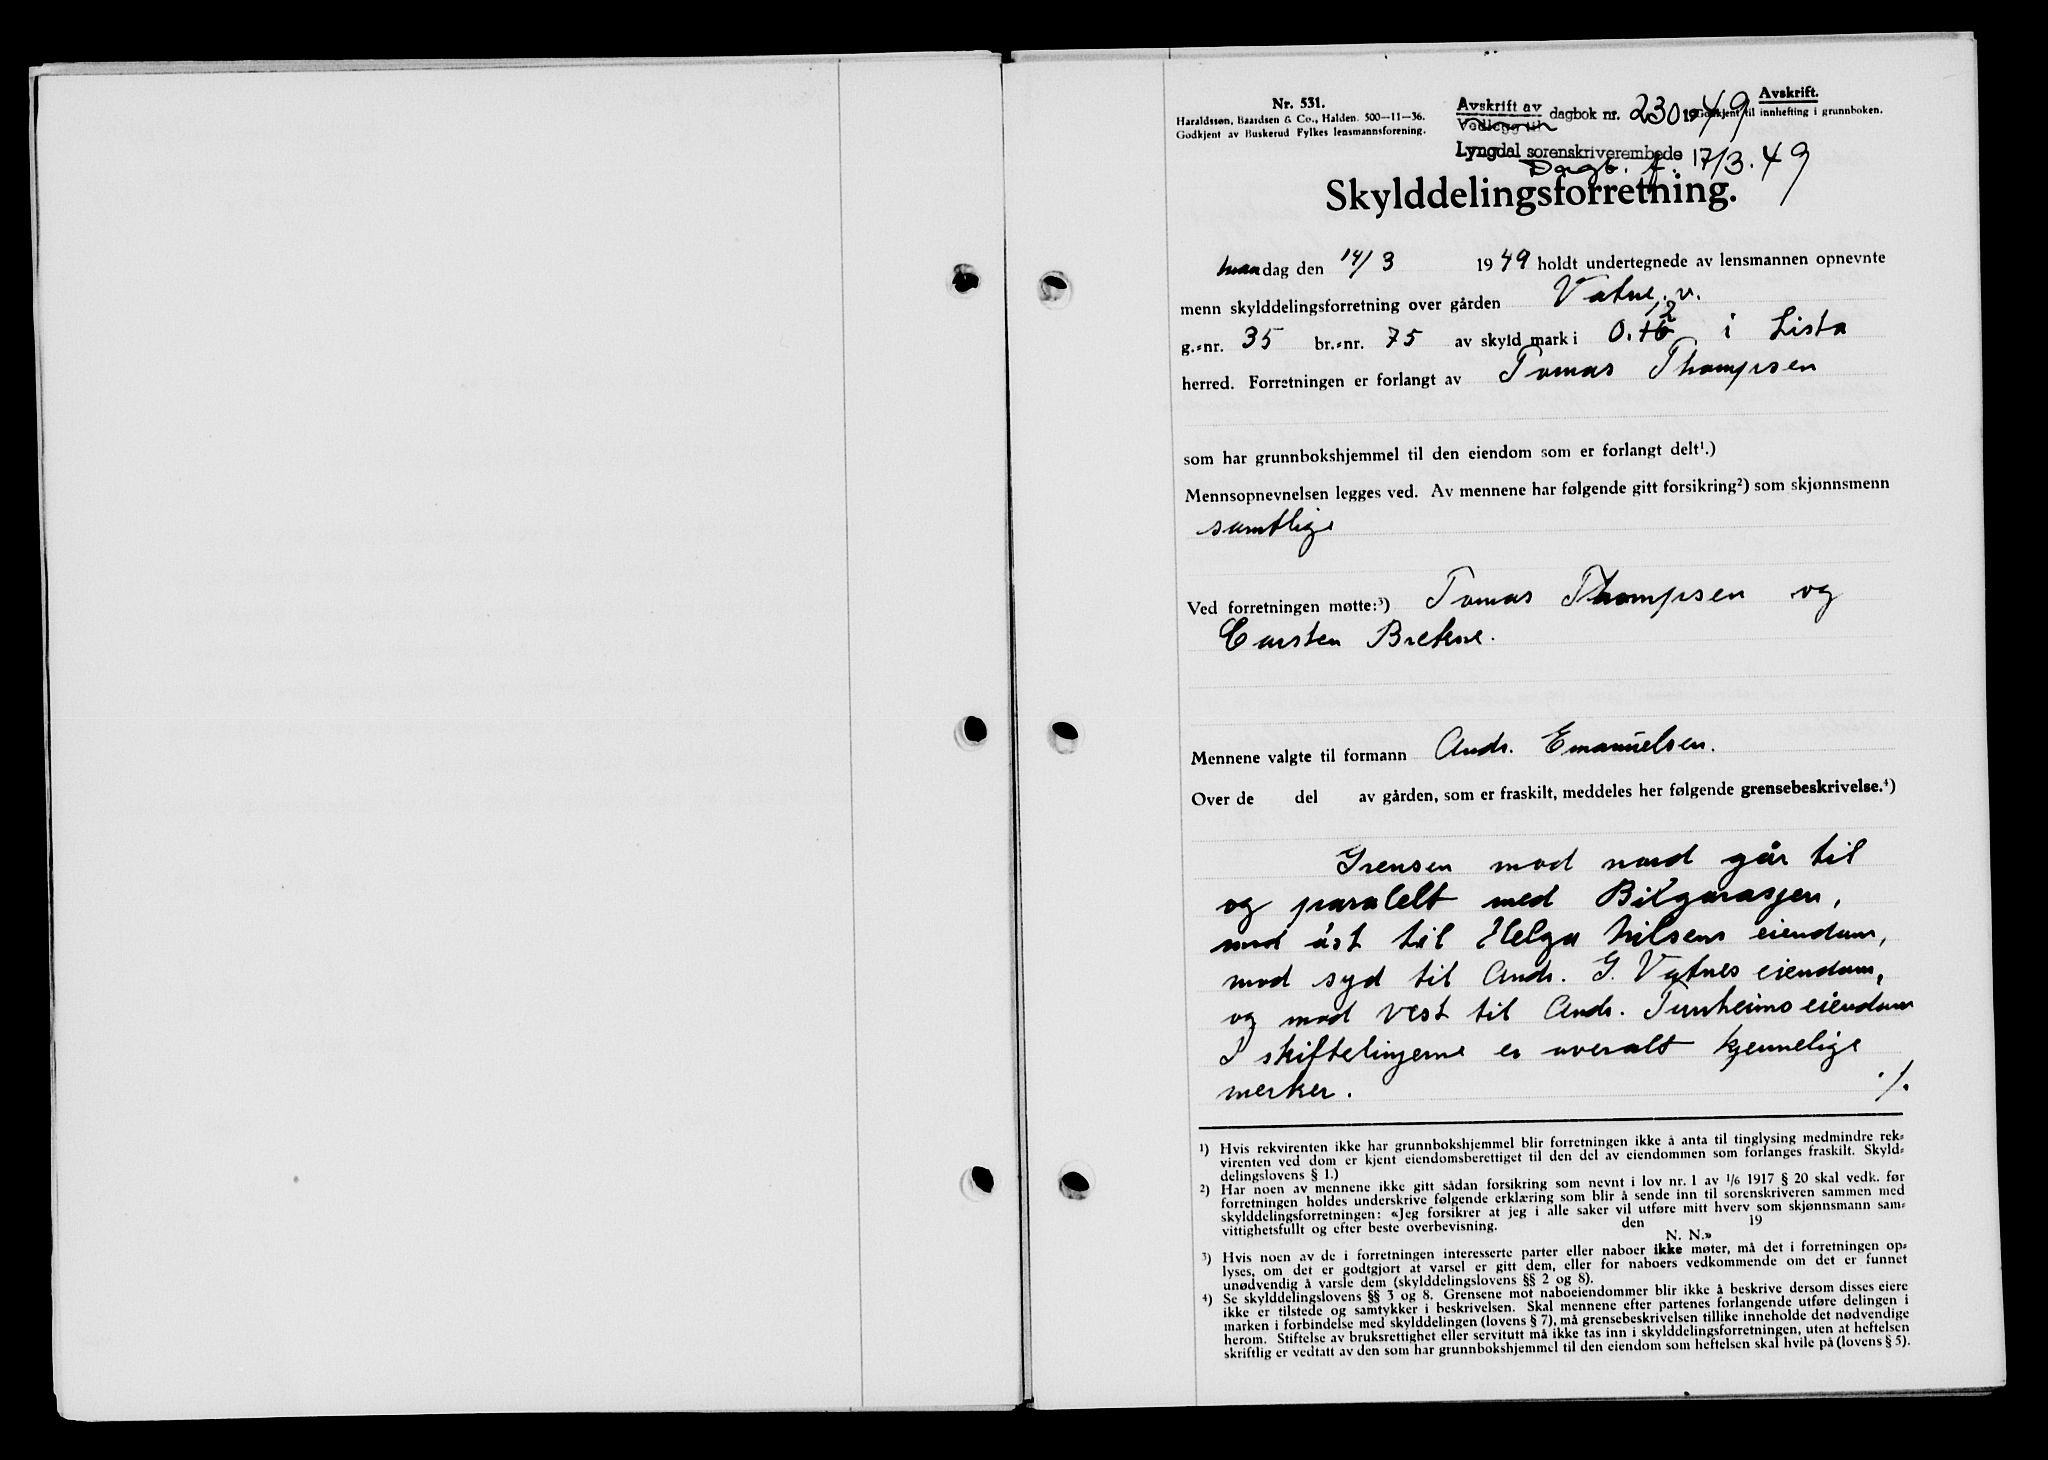 Nr. 531.
Haraldssøn, Baardsen & Co., Halden. 500—11—36.
Godkjent av Buskerud Fylkes lensmannsforening.
Avskrift av
Vedlegg til
dagbok nr. 230 1949
Avskrift.
Godkjent til innhefting i grunnboken.
Lyngdal sorenskriverembede
Dagb. f. 17/3.49
Skylddelingsforretning.
Mandag den 14/3 1949 holdt undertegnede av lensmannen opnevnte
menn skylddelingsforretning over gården Vatne. v.
g.=nr. 35 br.=nr. 75 av skyld mark i 0.12 i Lista
herred. Forretningen er forlangt av Tomas Thompsen
som har grunnbokshjemmel til den eiendom som er forlangt delt¹.)
Mennsopnevnelsen legges ved. Av mennene har følgende gitt forsikring²) som skjønnsmenn
samtlige
Ved forretningen møtte:³) Tomas Thompsen og
Carsten Brekne.
Mennene valgte til formann Andr. Emanuelsen.
Over de del av gården, som er fraskilt, meddeles her følgende grensebeskrivelse.⁴)
Grensen mod nord går til
og paralelt med Bilgarasjen,
mod öst til Helga Nilsens eiendom,
mod syd til Andr. G. Vatnes eiendom,
og mod vest til Andr. Tunheims eiendom
I skiftelinjerne er overalt kjennelige
merker. ./.
1) Hvis rekvirenten ikke har grunnbokshjemmel blir forretningen ikke å anta til tinglysing medmindre rek=
virenten ved dom er kjent eiendomsberettiget til den del av eiendommen som forlanges fraskilt. Skyld=
delingslovens § 1.)
2) Har noen av mennene ikke gitt sådan forsikring som nevnt i lov nr. 1 av 1/6 1917 § 20 skal vedk. før
forretningen holdes underskrive følgende erklæring som blir å sende inn til sorenskriveren sammen med
skylddelingsforretningen: «Jeg forsikrer at jeg i alle saker vil utføre mitt hverv som skjønnsmann sam=
vittighetsfullt og efter beste overbevisning. den 19
N. N.»
3) Hvis noen av de i forretningen interesserte parter eller naboer ikke møter, må det i forretningen op=
lyses, om det er godtgjort at varsel er gitt dem, eller for naboers vedkommende om det er funnet
unødvendig å varsle dem (skylddelingslovens §§ 2 og 8).
4) Se skylddelingslovens §§ 3 og 8. Grensene mot naboeiendommer blir ikke å beskrive dersom disses eiere
ikke er tilstede og samtykker i beskrivelsen. Skal mennene efter partenes forlangende utføre delingen i
marken i forbindelse med skylddelingen (lovens § 7), må grensebeskrivelsen tillike inneholde det nødvendige
herom. Stiftelse av bruksrettighet eller servitutt må ikke tas inn i skylddelingsforretningen, uten at heftelsen
skriftlig er vedtatt av den som har grunnbokshjemmel til den eiendom som heftelsen skal hvile på (lovens § 5).